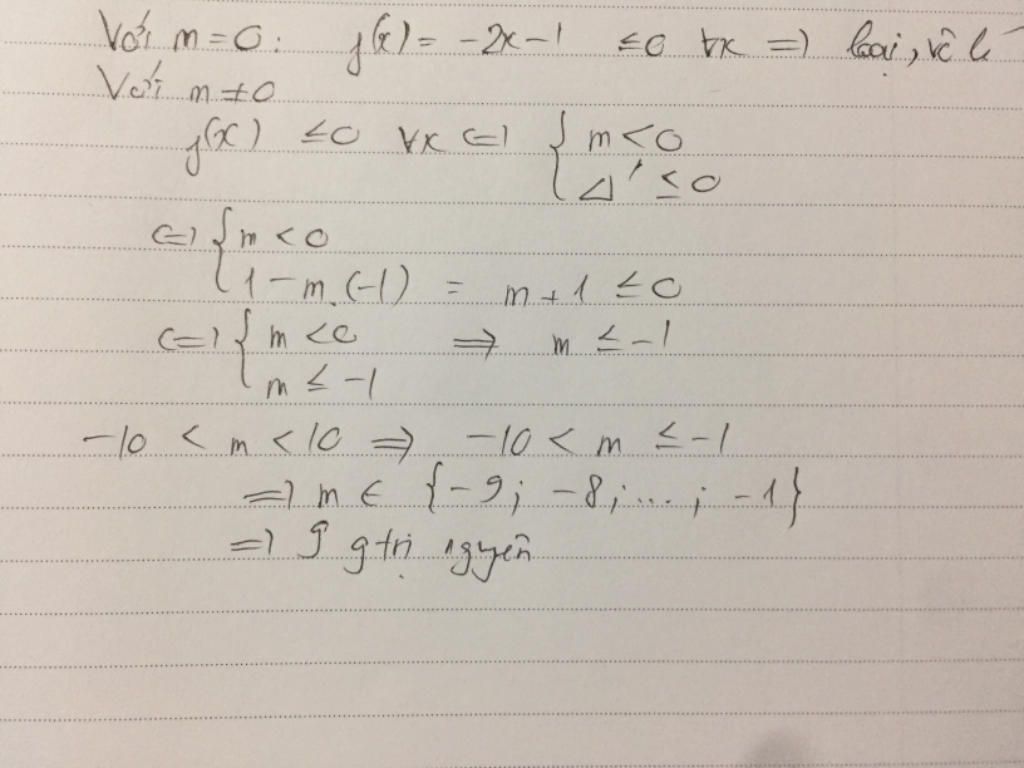 Với m=0: f(x) = -2x-1 ≤0 ∀x => loại, vô lí
Với m≠0
f(x) ≤0 ∀x <=> { m<0
Δ' ≤ 0
<=> { m < 0
1-m.(-1) = m+1 ≤0
<=> { m <0 => m ≤ -1
m ≤ -1
-10 < m < 10 => -10 < m ≤ -1
=> m ∈ {-9; -8; ...; -1}
=> 9 gtrị nguyên